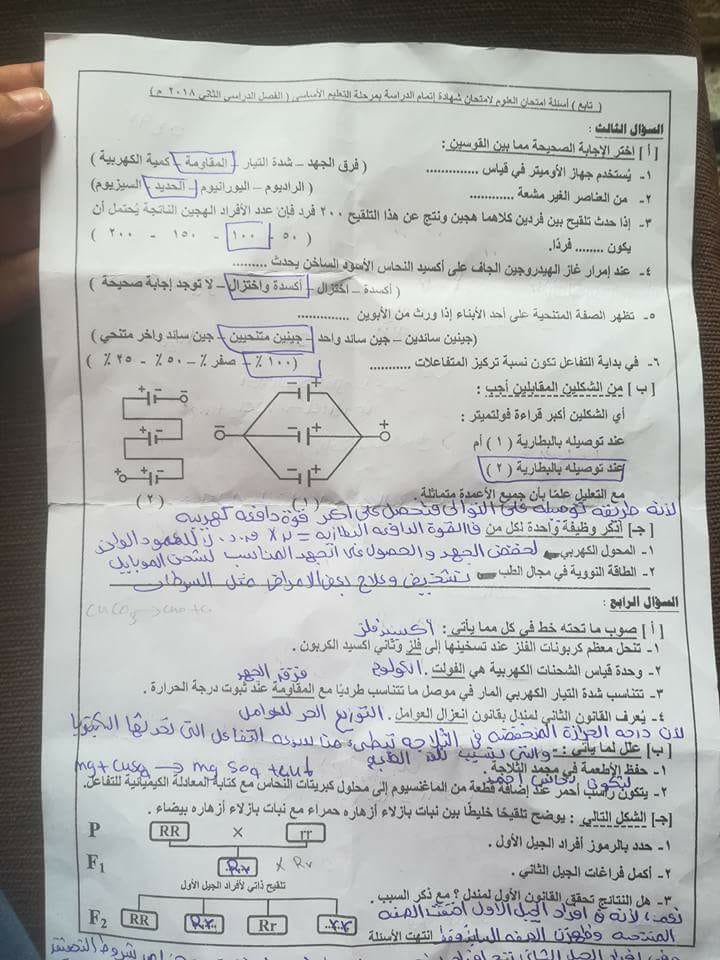 ( تابع ) أسئلة امتحان العلوم لامتحان شهادة إتمام الدراسة بمرحلة التعليم الأساسي ( الفصل الدراسي الثاني ٢٠١٨ م )
السؤال الثالث :
[ أ ] اختر الإجابة الصحيحة مما بين القوسين :
١- يُستخدم جهاز الأوميتر في قياس .............. ( فرق الجهد – شدة التيار – المقاومة – كمية الكهربية )
٢- من العناصر الغير مشعة ............ ( الراديوم – اليورانيوم – الحديد – السيزيوم )
٣- إذا حدث تلقيح بين فردين كلاهما هجين ونتج عن هذا التلقيح ٢٠٠ فرد فإن عدد الأفراد الهجين الناتجة يُحتمل أن
يكون ........ فردًا. ( ٥٠ - ١٠٠ - ١٥٠ - ٢٠٠ )
٤- عند إمرار غاز الهيدروجين الجاف على أكسيد النحاس الأسود الساخن يحدث .........
( أكسدة – اختزال – أكسدة واختزال – لا توجد إجابة صحيحة )
٥- تظهر الصفة المتنحية على أحد الأبناء إذا ورث من الأبوين ..............
(جينين ساندين – جين ساند واحد – جينين متنحيين – جين ساند واخر متنحي )
٦- في بداية التفاعل تكون نسبة تركيز المتفاعلات ............ (١٠٠ ٪ – صفر ٪ – ٥٠ ٪ - ٢٥ ٪ )
[ ب ] من الشكلين المقابلين أجب :
أي الشكلين أكبر قراءة فولتميتر :
عند توصيله بالبطارية ( ١ ) أم
عند توصيله بالبطارية ( ٢ )
مع التعليل علمًا بأن جميع الأعمدة متماثلة
( ١ )
( ٢ )
لأنه طريقة توصيله على التوالى فتحصل على أكبر قوة دافعة كهربية
[ جـ ] أذكر وظيفة واحدة لكل من
فالقوة الدافعة للبطارية =
١- المحول الكهربي لخفض الجهد والحصول على الجهد المناسب لشحن الموبايل
٢- الطاقة النووية في مجال الطب تشخيص وعلاج بعض الأمراض مثل السرطان
السؤال الرابع :
[ أ ] صوب ما تحته خط في كل مما يأتي : أكسيد فلز
١- تنحل معظم كربونات الفلز عند تسخينها إلى فلز وثاني أكسيد الكربون .
٢- وحدة قياس الشحنات الكهربية هي الفولت . الكولوم
فرق الجهد
٣- تتناسب شدة التيار الكهربي المار في موصل ما تتناسب طرديًا مع المقاومة عند ثبوت درجة الحرارة .
٤- يُعرف القانون الثاني لمندل بقانون انعزال العوامل . التوزيع الحر للعوامل
لأن درجه الحرارة المنخفضه في الثلاجه تبطئ من سرعه التفاعل التى تحدثها البكتيريا
[ ب ] علل لما يأتي : والتى تسبب تلف الطعام
١- حفظ الأطعمة في مجمد الثلاجة .
mg + CuSO4 → mg SO4 + Cu↓
لتكون نحاس أحمر
٢- يتكون راسب أحمر عند إضافة قطعة من الماغنسيوم إلى محلول كبريتات النحاس مع كتابة المعادلة الكيميائية للتفاعل.
[جـ] الشكل التالي : يوضح تلقيحًا خليطًا بين نبات بازلاء أزهاره حمراء مع نبات بازلاء أزهاره بيضاء .
P RR × rr
١- حدد بالرموز أفراد الجيل الأول .
F1 Rr × Rr
٢- أكمل فراغات الجيل الثاني .
تلقيح ذاتي لأفراد الجيل الأول
٣- هل النتائج تحقق القانون الأول لمندل ؟ مع ذكر السبب .
F2 RR Rr Rr rr
نعم، لأنه فى أفراد الجيل الأول اختفت الصفه
المتنحية وظهرت الصفه السائدة فقط
انتهت الأسئلة